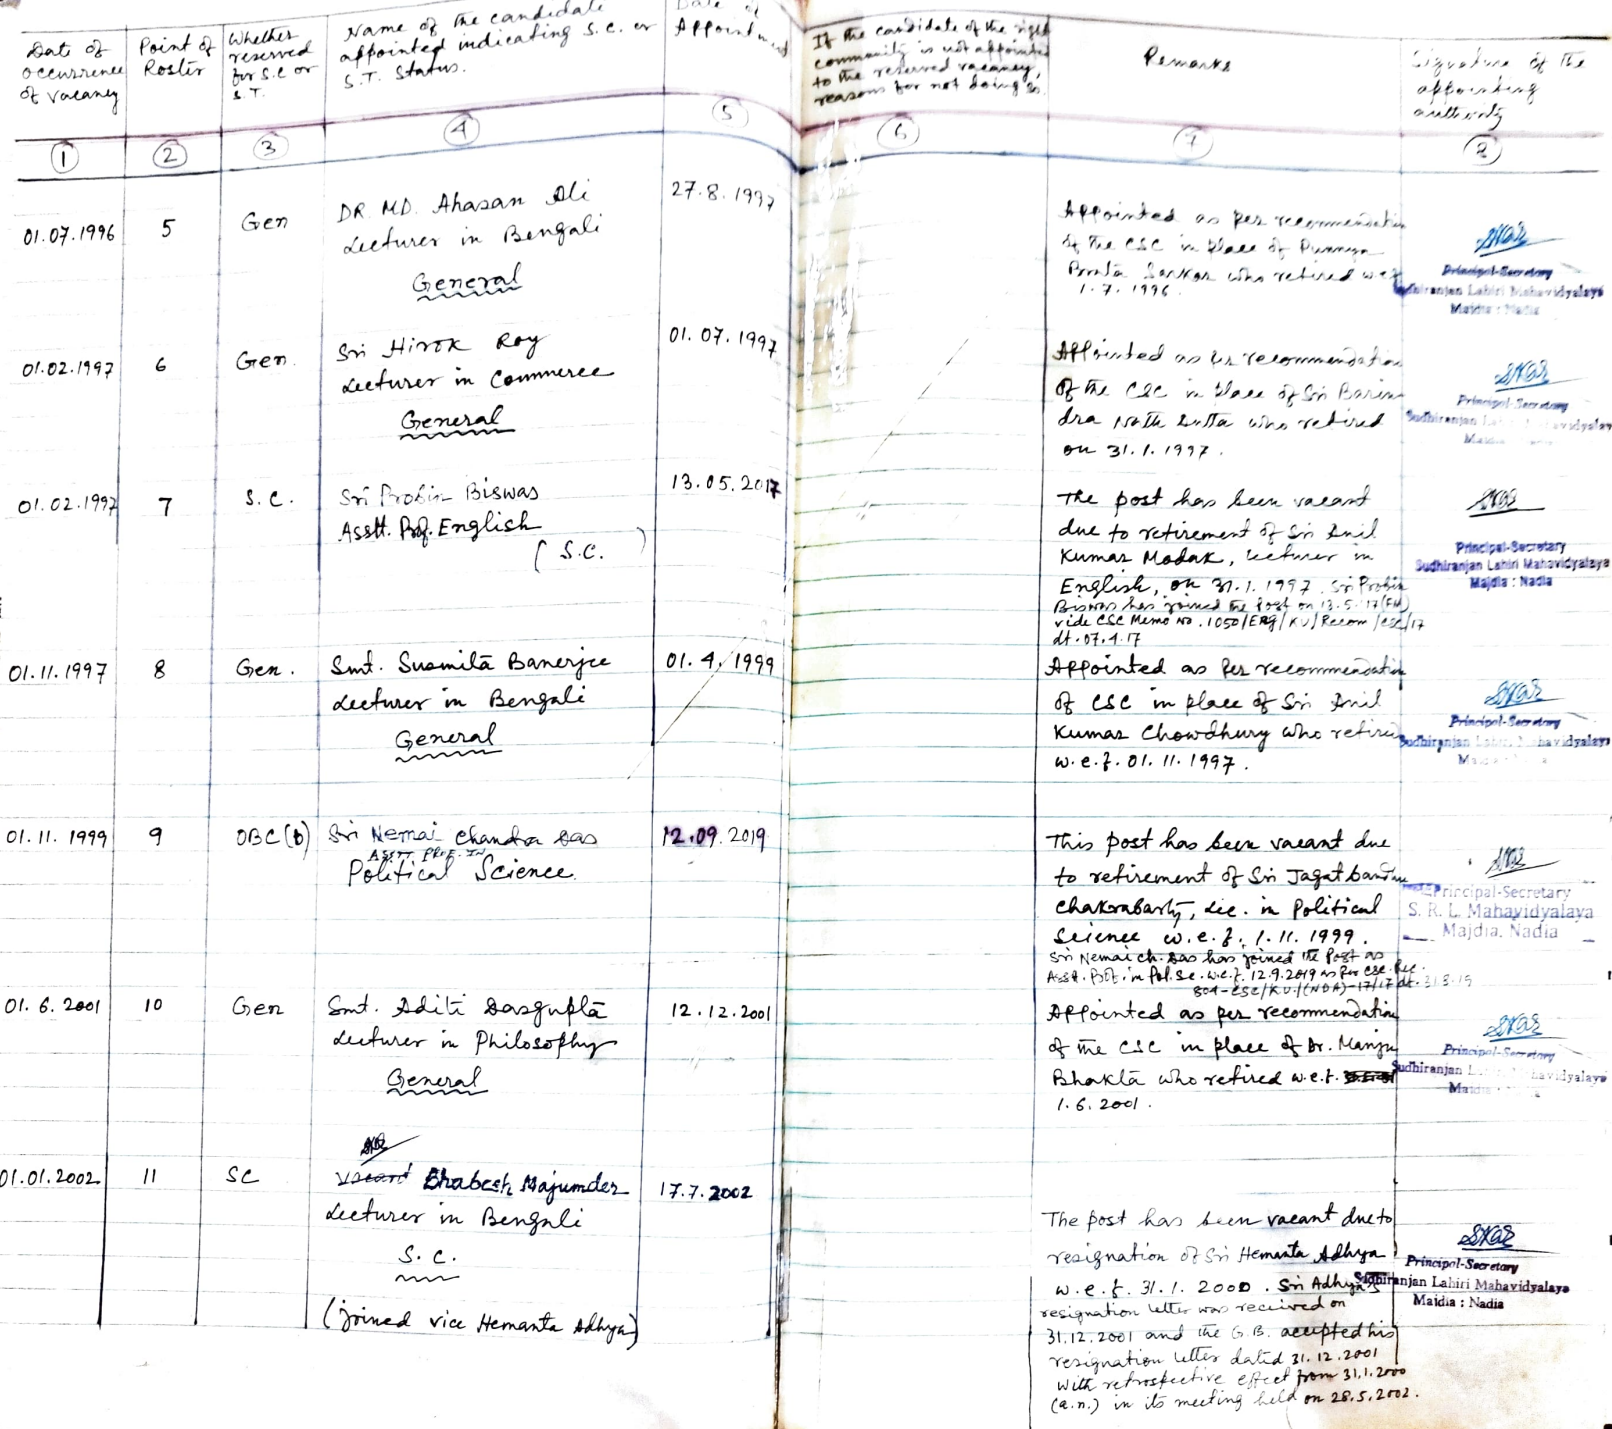 Date of
occurrence
of vacancy
Point of
Roster
Whether
reserved
for S.C or
S.T.
Name of the candidate
appointed indicating S.C. or
S.T. Status.
Date of
Appointment
If the candidate of the right
community is not appointed
to the reserved vacancy,
reasons for not doing so.
Remarks
Signature of the
appointing
authority
1
2
3
4
5
6
7
8
01.07.1996
5
Gen
DR. MD. Ahasan Ali
Lecturer in Bengali
General
27.8.1997
Appointed as per recommendation
of the CSC in place of
Sarkar who retired w.e.f
1.7.1996.
Principal-Secretary
Sudhiranjan Lahiri Mahavidyalaya
Majdia : Nadia
01.02.1997
6
Gen.
Sri Hirok Roy
Lecturer in Commerce
General
01.07.1997
Appointed as per recommendation
of the CSC in place of Sri Barin
dra Nath Dutta who retired
on 31.1.1997.
Principal-Secretary
Sudhiranjan Lahiri Mahavidyalaya
01.02.1997
7
S.C.
Sri Probin Biswas
Asstt. Prof. English
(S.C.)
13.05.2017
The post has been vacant
due to retirement of Sri Anil
Kumar Modak, lecturer in
English, on 31.1.1997. Sri Probin
Biswas has joined the post on 13.5.17(FN)
vide CSC Memo No. 1050/Eng/KU/Recom/CSC/17
dt. 07.4.17
Principal-Secretary
Sudhiranjan Lahiri Mahavidyalaya
Majdia : Nadia
01.11.1997
8
Gen.
Smt. Susmita Banerjee
Lecturer in Bengali
General
01.4.1999
Appointed as per recommendation
of CSC in place of Sri Anil
Kumar Chowdhury who retired
w.e.f. 01.11.1997.
Principal-Secretary
Sudhiranjan Lahiri Mahavidyalaya
01.11.1999
9
OBC(b)
Sri Nemai Chandra Das
ASSTT. PROF. IN
Political Science.
12.09.2019
This post has been vacant due
to retirement of Sri Jagatbandhu
Chakrabarty, Lec. in Political
Science w.e.f. 1.11.1999.
Sri Nemai Ch. Das has joined the post as
Asst. Prof. in Pol. Sc. w.e.f. 12.9.2019 as per CSC. Rec.
Principal-Secretary
S. R. L. Mahavidyalaya
Majdia. Nadia
01.6.2001
10
Gen
Smt. Aditi Dasgupta
Lecturer in Philosophy
General
12.12.2001
Appointed as per recommendation
of the CSC in place of Dr. Manju
Bhakta who retired w.e.f.
1.6.2001.
Principal-Secretary
Sudhiranjan Lahiri Mahavidyalaya
01.01.2002
11
SC
Vacant Bhabesh Majumder
Lecturer in Bengali
S.C.
(joined vice Hemanta Adhya)
17.7.2002
The post has been vacant due to
resignation of Sri Hemanta Adhya
w.e.f. 31.1.2000. Sri Adhya's
resignation letter was received on
31.12.2001 and the G.B. accepted his
resignation letter dated 31.12.2001
with retrospective effect from 31.1.2000
(a.n.) in its meeting held on 28.5.2002.
Principal-Secretary
Sudhiranjan Lahiri Mahavidyalaya
Majdia : Nadia